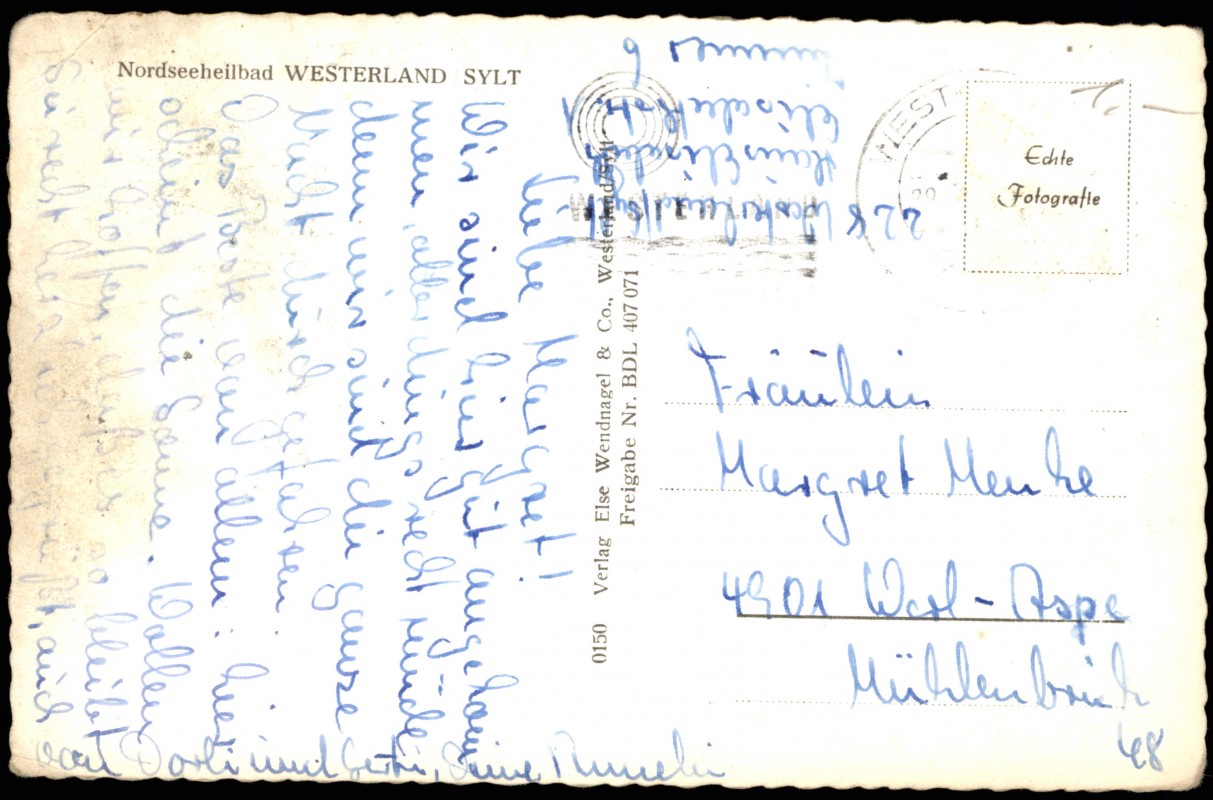 Nordseeheilbad WESTERLAND SYLT
Liebe Margret!
Wir sind hier gut angekom
men, allerdings recht müde
denn wir sind die ganze
Nacht durchgefahren
Das Beste von allem: hier
scheint die Sonne. Wollen
wir hoffen, daß es so bleibt
Sei recht herzlich gegrüßt, auch
von Dorli und Gerti, Deine
0150 Verlag Else Wendnagel & Co., Westerland/Sylt
Freigabe Nr. BDL 407 071
228 Westerland/Sylt
Haus Elisabeth
Elisabethstr. 1
Zimmer 6
WEST
WESTERLAND
Echte
Fotografie
Fräulein
Margret Menke
4901 Wost-Aspe
Mühlenbruch
48